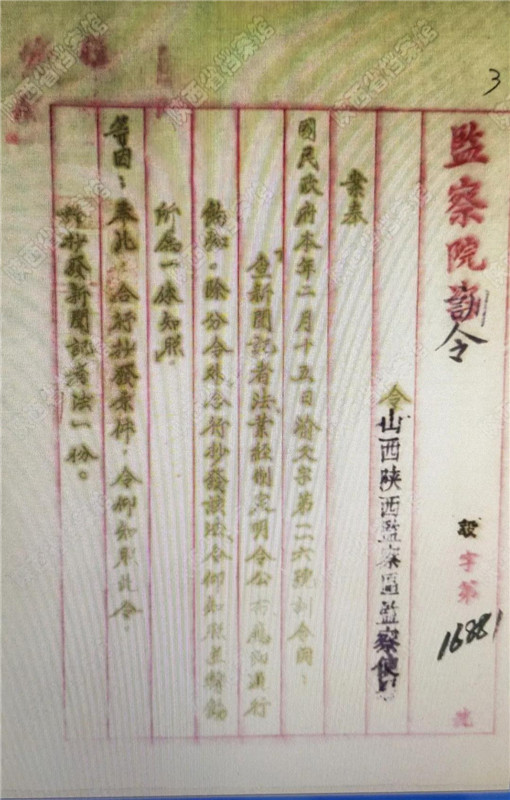 3
監察院訓令
字第16881號
令山西陝西監察區監察使
案奉
國民政府本年二月十五日渝文字第一一六號訓令開：
查新聞記者法業經制定明令公布應即通行
飭知，除分令外合行抄發該法，令仰知照並轉飭
所屬一体知照
等因；奉此，合行抄發原件，令仰知照此令
抄發新聞記者法一份。
陕西省档案馆